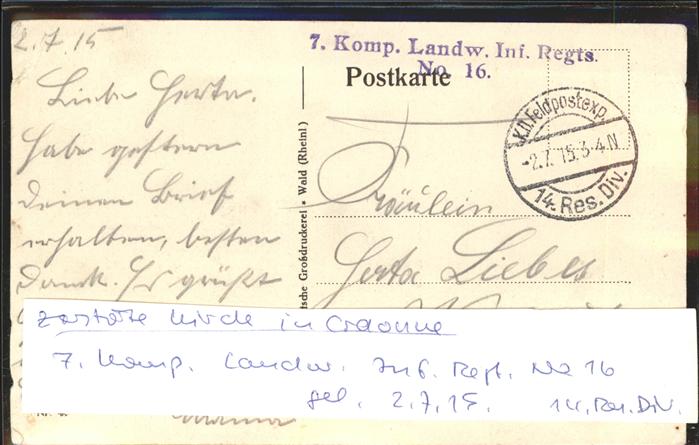 2.7.15
Liebe Herta.
Habe gestern
deinen Brief
erhalten, besten
Dank. Es grüßt
7. Komp. Landw. Inf. Regts.
No. 16.
Postkarte
K.D. Feldpostexp.
-2.7.15.3-4.N
14. Res. Div.
tsche Großdruckerei • Wald (Rheinl)
Fräulein
Herta Liebes
zerstörte Kirche in Craonne
7. Komp. Landw. Inf. Regt. No 16
gel. 2.7.15. 14. Res. Div.